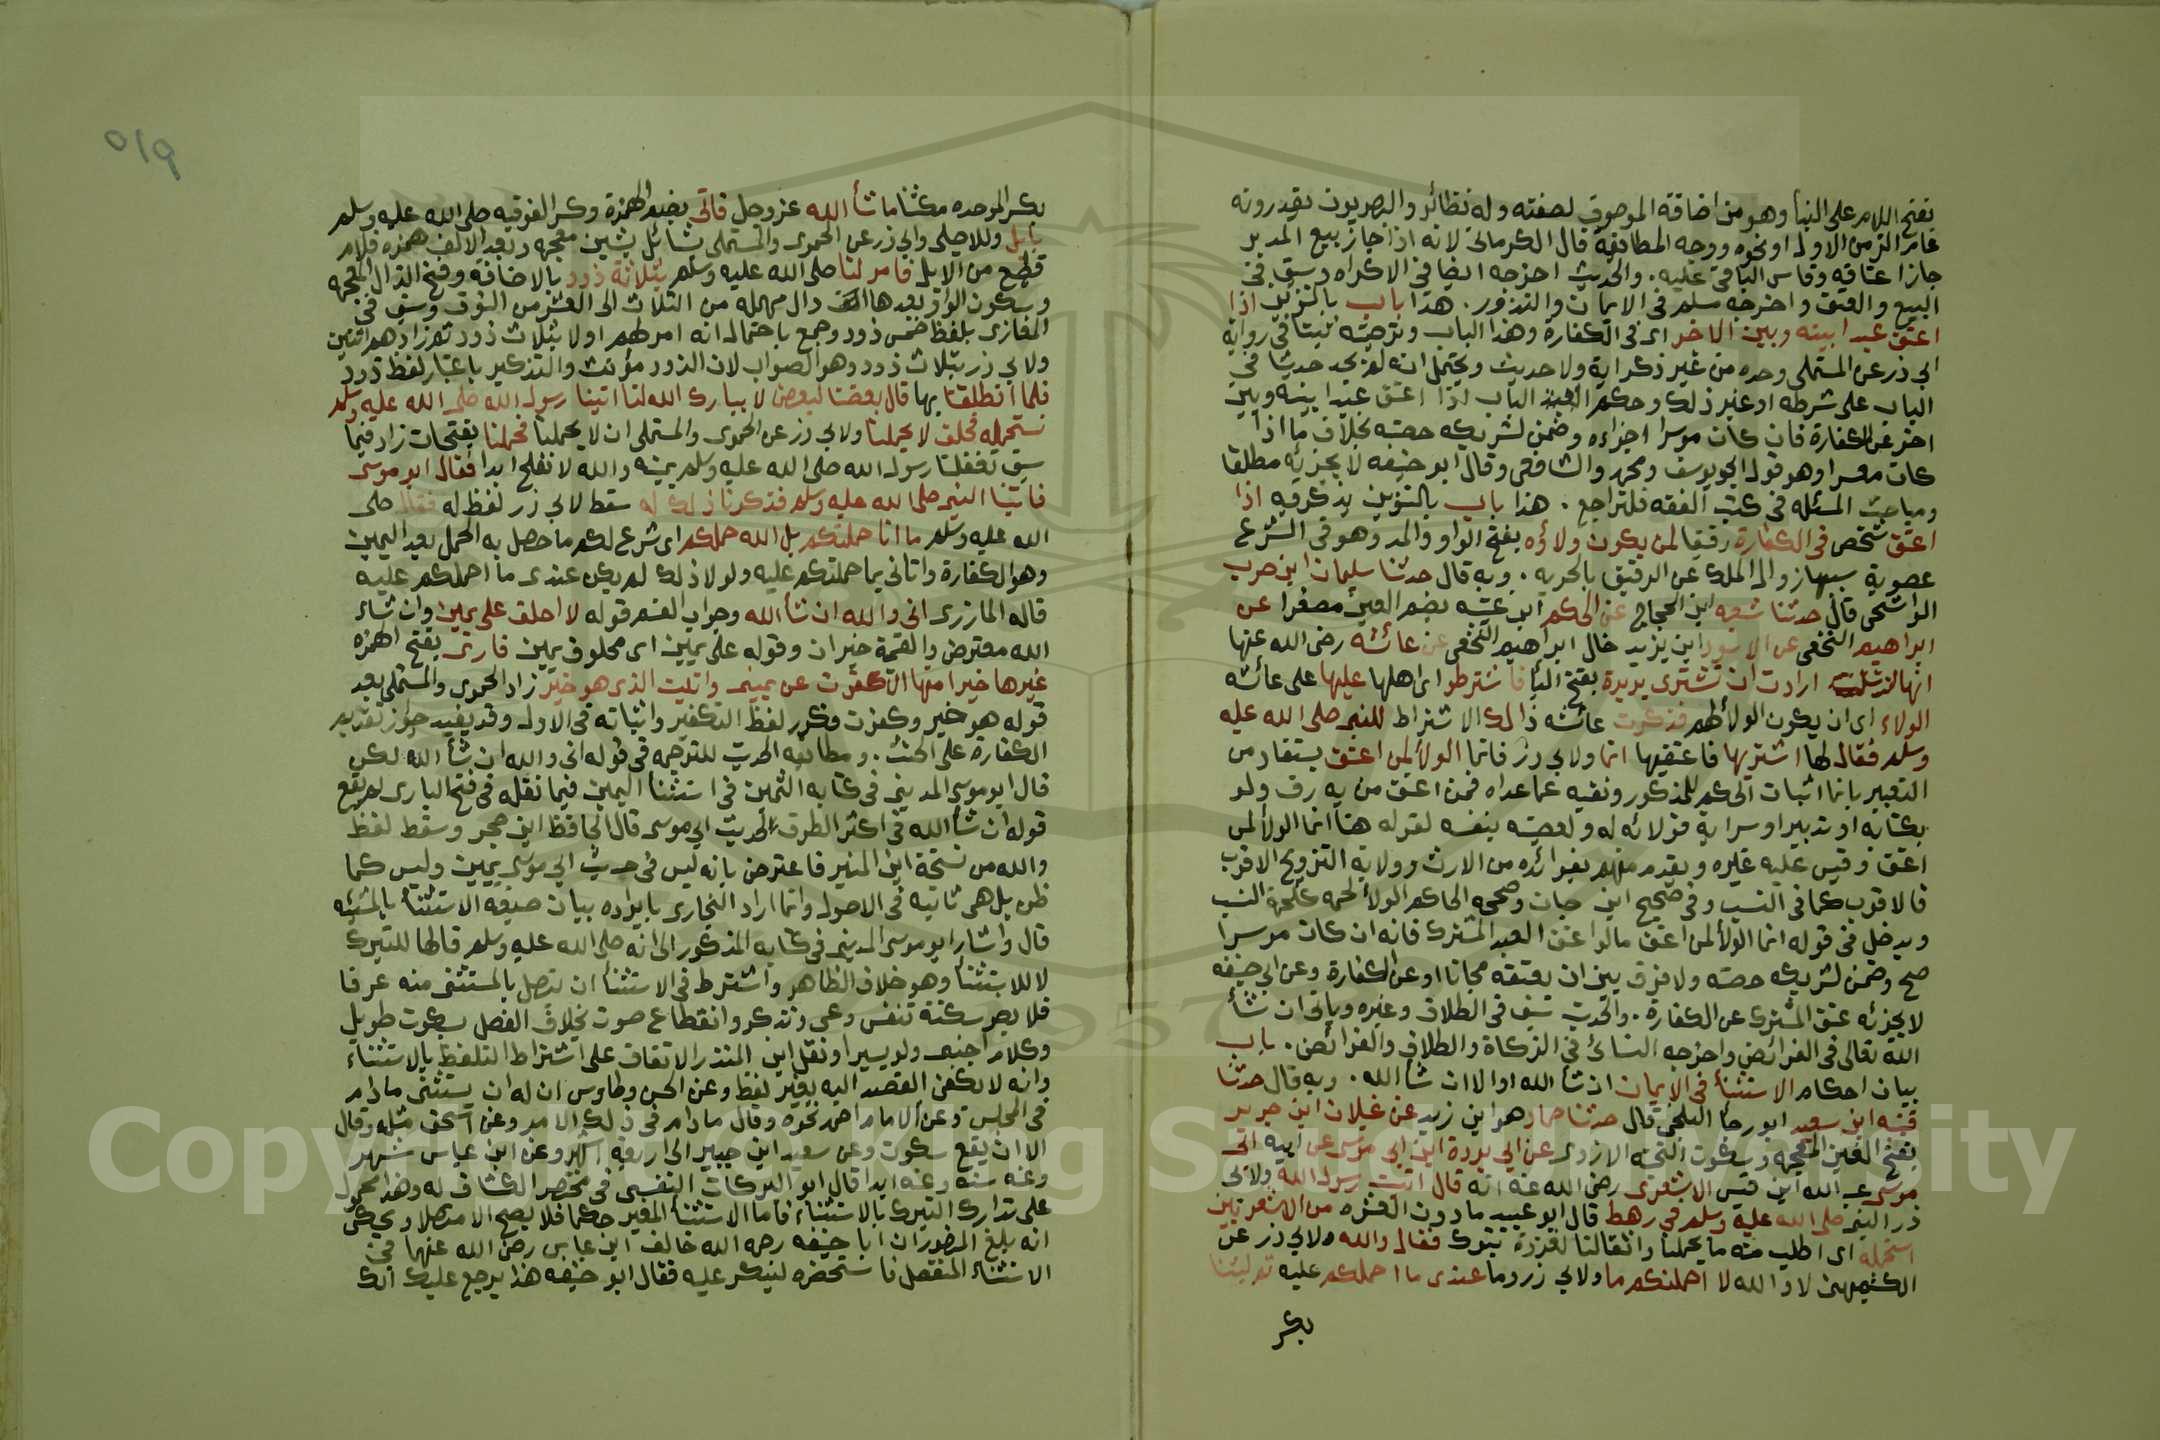 بفتح اللام على البنا وهو من اضافة الموصوف لصفته وله نظائر والبصريون يقدرونه
عام الزمن الاول او نحوه ووجه المطابقة قال الكرمانى لانه اذا جاز بيع المدبر
جاز اعتاقه وقاس الباقى عليه. والحديث اخرجه ايضا فى الاكراه وسبق فى
البيع والعتق واخرجه مسلم فى الايمان والنذور. هذا باب بالتنوين اذا
اعتق عبدا بينه وبين الاخر اى فى الكفارة وهذا الباب وترجمته ثبتا فى رواية
ابى ذر عن المستملى وحده من غير ذكر اية ولا حديث ويحتمل انه لم يجد حديثا فى
الباب على شرطه او غير ذلك وحكم الباب اذا اعتق عبدا بينه وبين
اخر عن الكفارة فان كان موسرا اجزاه وضمن لشريكه حصته بخلاف ما اذا
كان معسرا وهو قول ابو يوسف ومحمد والشافعى وقال ابو حنيفه لا يجزئه مطلقا
ومباحث المسئله فى كتب الفقه فلتراجع. هذا باب بالتنوين يذكر فيه اذا
اعتق شخص فى الكفارة رقيقا لمن يكون ولاؤه بفتح الواو والمد وهو فى الشرع
عصوبة سببها زوال الملك عن الرقيق بالحريه. وبه قال حدثنا سليمان ابن حرب
الواشحى قال حدثنا شعبه ابن الحجاج عن الحكم ابن عتيبه بضم العين مصغرا عن
ابراهيم النخعى عن الاسود ابن يزيد خال ابراهيم النخعى عن عائشه رضى الله عنها
انها ارادت ان تشترى بريرة بفتح البا فاشترطوا اى اهلها عليها على عائشه
الولاء اى ان يكون الولا لهم فذكرت عائشه ذالك الاشتراط للنبى صلى الله عليه
وسلم فقال لها اشتريها فاعتقيها انما ولابى ذر فانما الولا لمن اعتق يستفاد من
التعبير بانما اثبات الحكم للمذكور ونفيه عما عداه فمن اعتق من به رق ولو
بكتابة او تدبير او سراية فولائه له ولعصبته بنفسه لقوله هنا انما الولا لمن
اعتق وقيس عليه غيره ويقدم منهم بفوائده من الارث وولاية التزويج الاقرب
فالاقرب كما فى النسب وفى صحيح ابن حبان وصححه الحاكم الولا لحمه كلحمة النسب
ويدخل فى قوله انما الولا لمن اعتق ما لو اعتق العبد المشترك فانه ان كان موسرا
صح وضمن لشريكه حصته ولا فرق بين ان يعتقه مجانا او عن الكفارة وعن ابى حنيفه
لا يجزئه عتق المشترك عن الكفارة. والحديث سبق فى الطلاق وغيره وياتى ان شأ
الله تعالى فى الفرائض واخرجه النسائى فى الزكاة والطلاق والفرائض. باب
بيان احكام الاستثنأ فى الايمان ان شأ الله اوالا ان شأ الله. وبه قال حدثنا
قتيبه ابن سعيد ابو رجا البلخى قال حدثنا حماد هو ابن زيد عن غيلان ابن جرير
بفتح الغين المعجمه وسكون التحتيه الازدى عن ابى بردة ابن ابى موسى عن ابيه ابى
موسى عبد الله ابن قيس الاشعرى رضى الله عنه انه قال اتيت رسول الله ولابى
ذر النبى صلى الله عليه وسلم فى رهط قال ابو عبيد ما دون العشره من الاشعريين
استحمله اى اطلب منه ما يحملنا واثقالنا لغزوة تبوك فقال والله ولابى ذر عن
الكشميهنى لا والله لا احملكم ما ولابى ذر وما عندى ما احملكم عليه ثم لبثنا
بكسر
٥١٩
بكسر الموحده مكثنا ما شأ الله عز وجل فاتى بضم الهمزة وكسر الفوقيه صلى الله عليه وسلم
بابل وللاصيلى وابى ذر عن الحموى والمستملى بشائل بشين معجمه وبعد الالف همزه فلام
قطع من الابل فامر لنا صلى الله عليه وسلم بثلاثة ذود بالاضافة وفتح الذال المعجمه
وسكون الواو بعدها دال مهمله من الثلاث الى العشر من النوق وسبق فى
المغازى بلفظ خمس ذود وجمع باحتمال انه امر لهم اولا بثلاث ذود ثم زادهم اثنين
ولابى ذر بثلاث ذود وهو الصواب لان الذود مؤنث والتذكير باعتبار لفظ ذود
فلما انطلقنا بها قال بعضنا لبعض لا يبارك الله لنا اتينا رسول الله صلى الله عليه وسلم
نستحمله فحلف لا يحملنا ولابى ذر عن الحموى والمستملى ان لا يحملنا فحملنا بفتحات زاد فيما
سبق تغفلنا رسول الله صلى الله عليه وسلم يمينه والله لا نفلح ابدا فقال ابو موسى
فاتينا النبى صلى الله عليه وسلم فذكرنا ذلك له سقط لابى ذر لفظ له فقال صلى
الله عليه وسلم ما انا حملتكم بل الله حملكم اى شرع لكم ما حصل به الحمل بعد اليمين
وهو الكفارة واتانى بما حملتكم عليه ولولا ذلك لم يكن عندى ما احملكم عليه
قاله المازرى انى والله ان شأ الله وجواب القسم قوله لا احلف على يمين وان شاء
الله معترض والقسمة خبر ان وقوله على يمين اى محلوف يمين فارى بفتح الهمزه
غيرها خيرا منها الا كفرت عن يمينى واتيت الذى هو خير زاد الحموى والمستملى بعد
قوله هو خير وكفرت فكرر لفظ التكفير واثباته فى الاول وقد يفيد جواز تقديم
الكفارة على الحنث. ومطابقة الحديث للترجمه فى قوله انى والله ان شأ الله لكن
قال ابو موسى المدينى فى كتابه الثمين فى استثنأ اليمين فيما نقله فى فتح البارى لم يقع
قوله ان شأ الله فى اكثر الطرق لحديث ابى موسى قال الحافظ ابن حجر وسقط لفظ
والله من نسخة ابن المنير فاعترض بانه ليس فى حديث ابى موسى يمين وليس كما
ظن بل هى ثابته فى الاصول وانما اراد البخارى بايراده بيان صيغة الاستثنأ بالمشيئه
قال واشار ابو موسى المدينى فى كتابه المذكور الى انه صلى الله عليه وسلم قالها للتبرك
لا للاستثنأ وهو خلاف الظاهر واشترط فى الاستثنأ ان يتصل بالمستثنى منه عرفا
فلا يضر سكتة تنفس وعى وتذكر وانقطاع صوت بخلاف الفصل بسكوت طويل
وكلام اجنبى ولو يسيرا ونقل ابن المنذر الاتفاق على اشتراط التلفظ بالاستثناء
وانه لا يكفى القصد اليه بغير لفظ وعن الحسن وطاوس ان له ان يستثنى مادام
فى المجلس وعن الامام احمد نحوه وقال مادام فى ذلك الامر وعن اسحق مثله وقال
الا ان يقع سكوت وعن سعيد ابن جبير الى اربعة اشهر وعن ابن عباس شهر
وعنه سنه وعنه ابدا قال ابو البركات النسفى فى مختصر الكشاف له وهذا محمول
على تدارك التبرك بالاستثناء فاما الاستثنأ المغير حكما فلا يصح الا متصلا ويحكى
انه بلغ المنصور ان ابا حنيفه رحمه الله خالف ابن عباس رضى الله عنهما فى
الاستثناء المنفصل فاستحضره لينكر عليه فقال ابو حنيفه هذا يرجع عليك انك
Copyright © King Saud University
1957